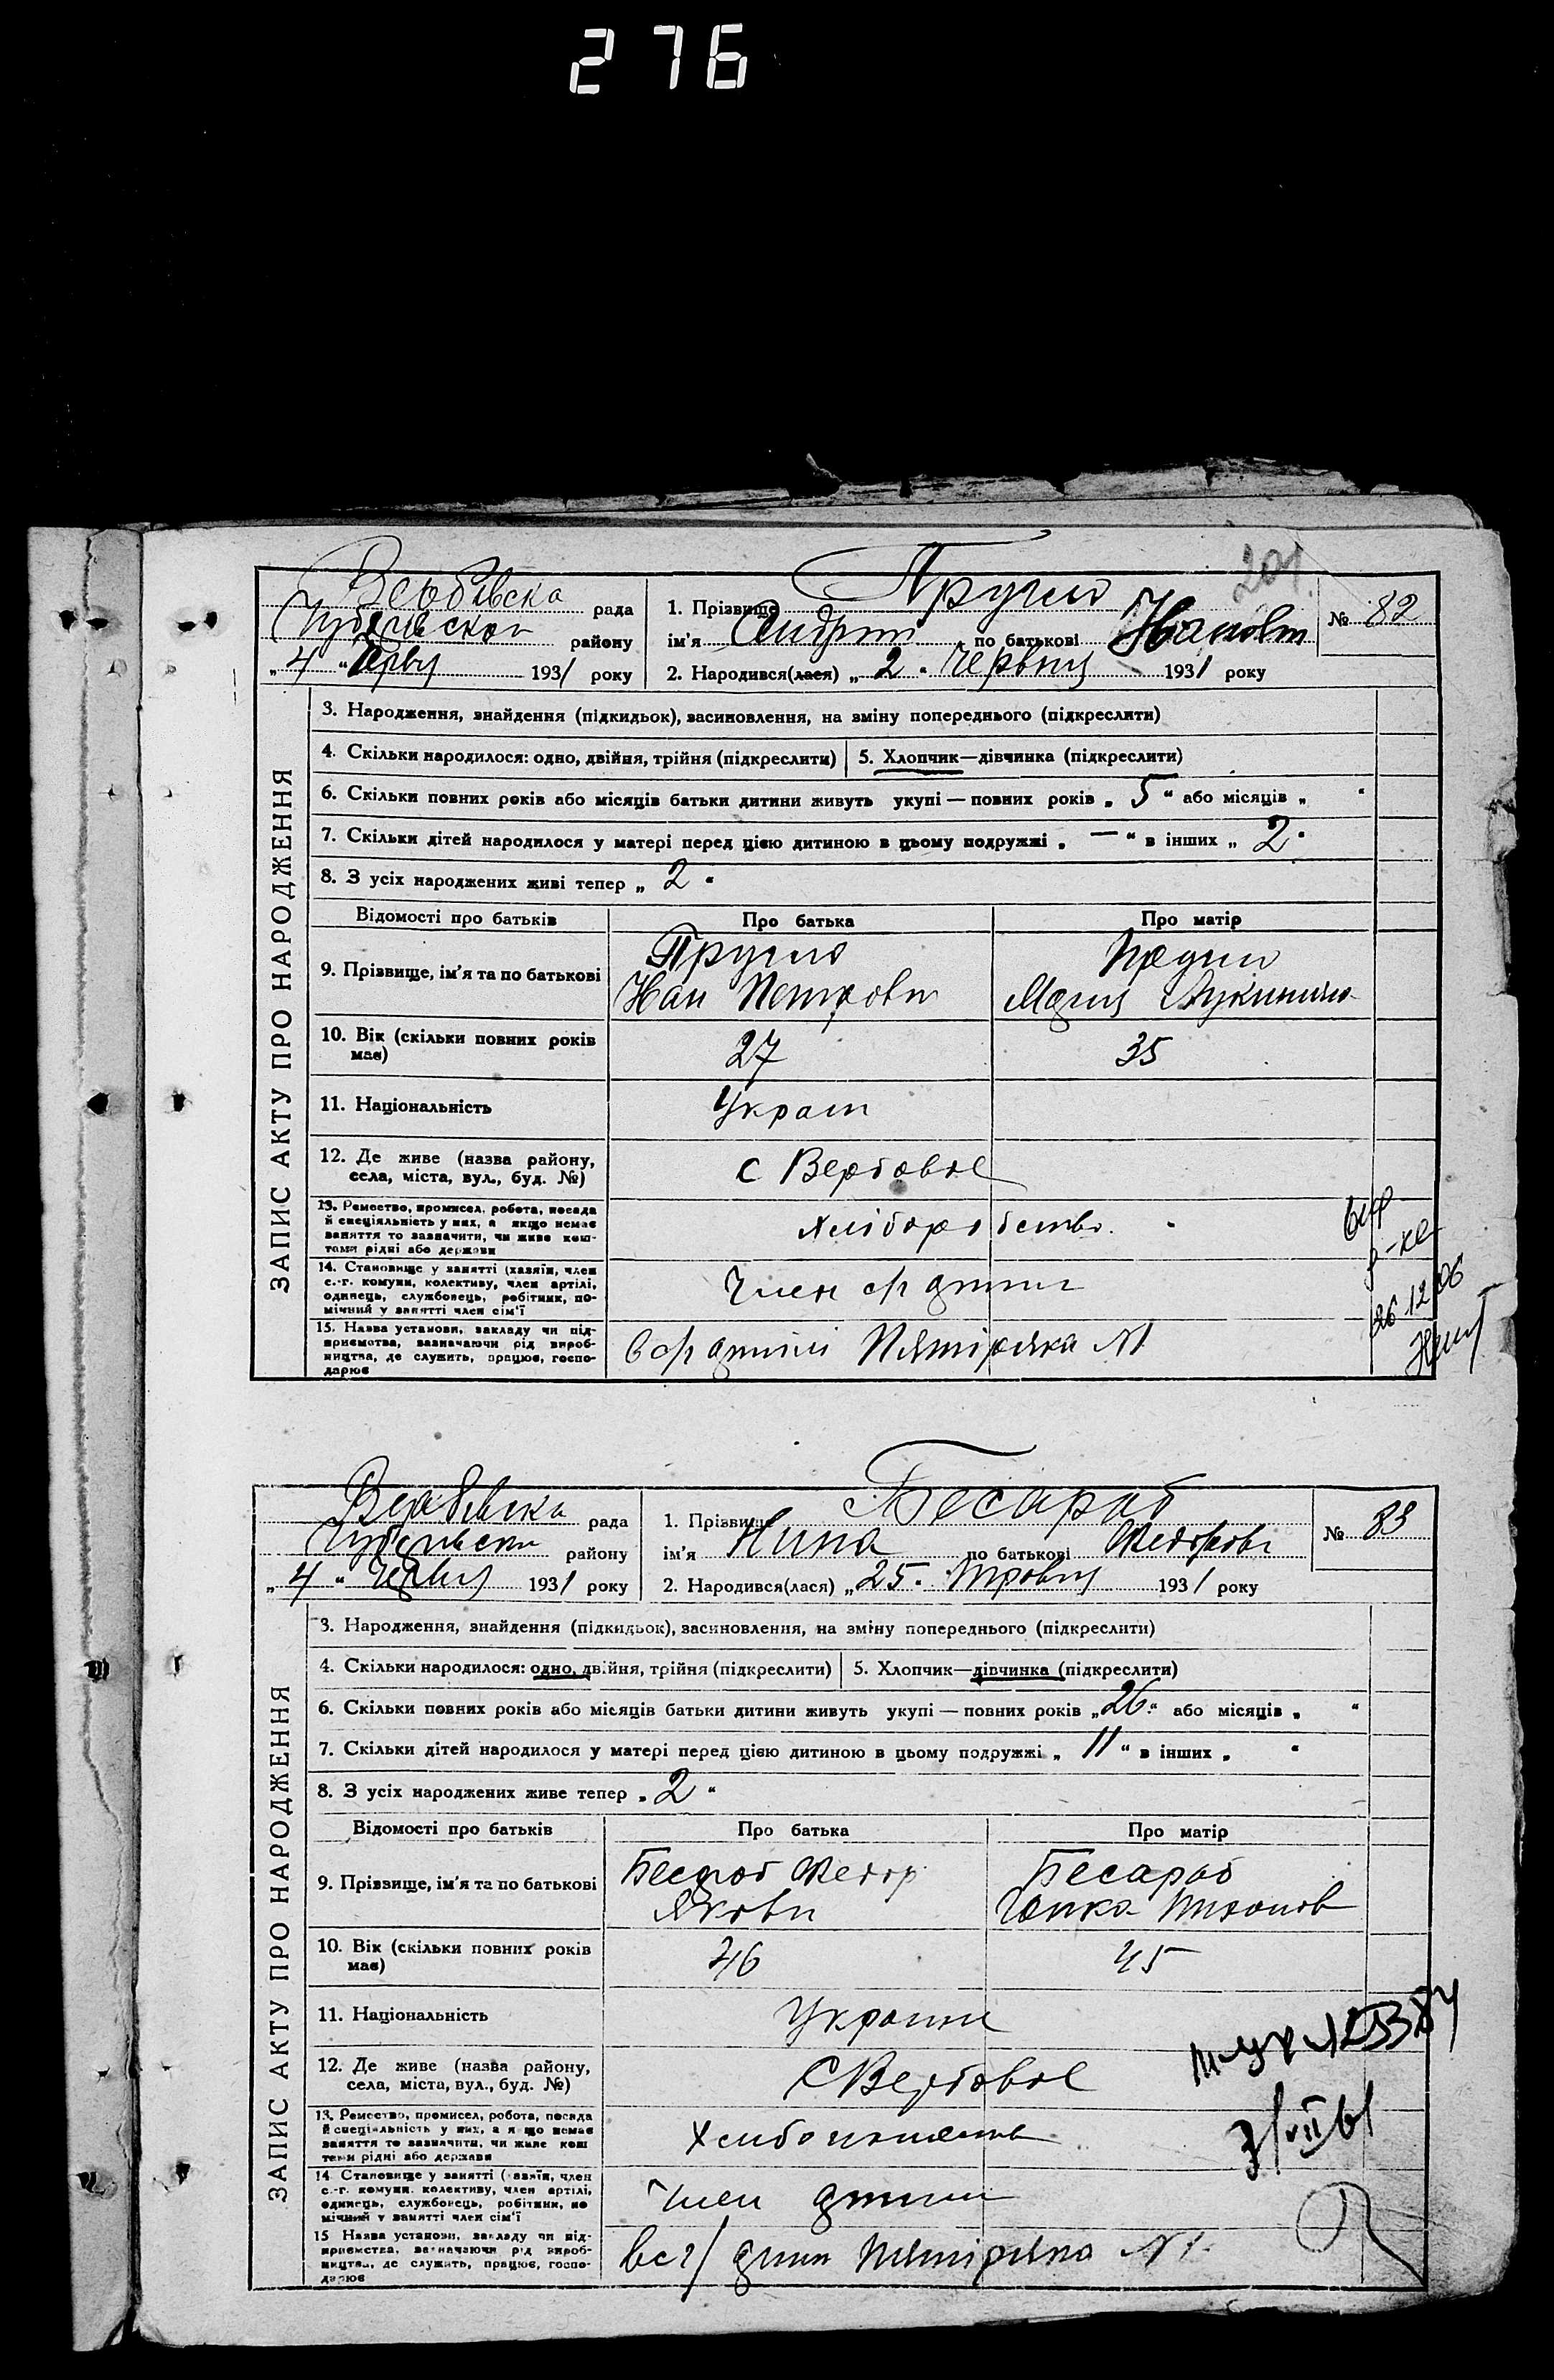 276
201
Вербівська рада
району
„4“ Червня 1931 року
1. Прізвище
ім'я Андрій по батькові Іванович
2. Народився(лася) „2“ Червня 1931 року
№ 82
ЗАПИС АКТУ ПРО НАРОДЖЕННЯ
3. Народження, знайдення (підкидьок), засиновлення, на зміну попереднього (підкреслити)
4. Скільки народилося: одно, двійня, трійня (підкреслити) 5. Хлопчик—дівчинка (підкреслити)
6. Скільки повних років або місяців батьки дитини живуть укупі — повних років „5“ або місяців „ “
7. Скільки дітей народилося у матері перед цією дитиною в цьому подружжі „—“ в інших „2“
8. З усіх народжених живі тепер „2“
Відомості про батьків Про батька Про матір
9. Прізвище, ім'я та по батькові
Іван Петрови Мария
10. Вік (скільки повних років
має) 27 35
11. Національність Украин
12. Де живе (назва району,
села, міста, вул., буд. №) с Вербовое
13. Ремество, промисел, робота, посада
й спеціяльність у них, а якщо немає
заняття то зазначити, чи живе кош-
тами рідні або держави
хліборобство
14. Становище у занятті (хазяїн, член
с.-г. комуни, колективу, член артілі,
одинець, службовець, робітник, по-
мічний у занятті член сім'ї
Член с/г артили
15. Назва установи, закладу чи під-
приємства, зазначаючи рід вироб-
ництва, де служить, працює, госпо-
дарює
в с/г артілі Пятирічка №1
26.12.06
Вербівська рада
району
„4“ Червня 1931 року
1. Прізвище Бесараб
ім'я Нина по батькові Федоровн
2. Народився(лася) „25“ Травня 1931 року
№ 83
ЗАПИС АКТУ ПРО НАРОДЖЕННЯ
3. Народження, знайдення (підкидьок), засиновлення, на зміну попереднього (підкреслити)
4. Скільки народилося: одно, двійня, трійня (підкреслити) 5. Хлопчик—дівчинка (підкреслити)
6. Скільки повних років або місяців батьки дитини живуть укупі — повних років „26“ або місяців „ “
7. Скільки дітей народилося у матері перед цією дитиною в цьому подружжі „11“ в інших „ “
8. З усіх народжених живе тепер „2“
Відомості про батьків Про батька Про матір
9. Прізвище, ім'я та по батькові
Бесараб Федор Бесараб
Якови Гапка Тихонов
10. Вік (скільки повних років
має) 46 45
11. Національність Украине
12. Де живе (назва району,
села, міста, вул., буд. №) С Вербовое
13. Ремество, промисел, робота, посада
й спеціяльність у них, а якщо немає
заняття то зазначити, чи живе кош
тами рідні або держави
14. Становище у занятті (хазяїн, член
с.-г. комуни, колективу, член артілі,
одинець, службовець, робітник, по
мічний у занятті член сім'ї
Член артили
15. Назва установи, закладу чи під-
приємства, зазначаючи рід вироб-
ництва, де служить, працює, госпо-
дарює
в с г/ артил Пятирічка №1.